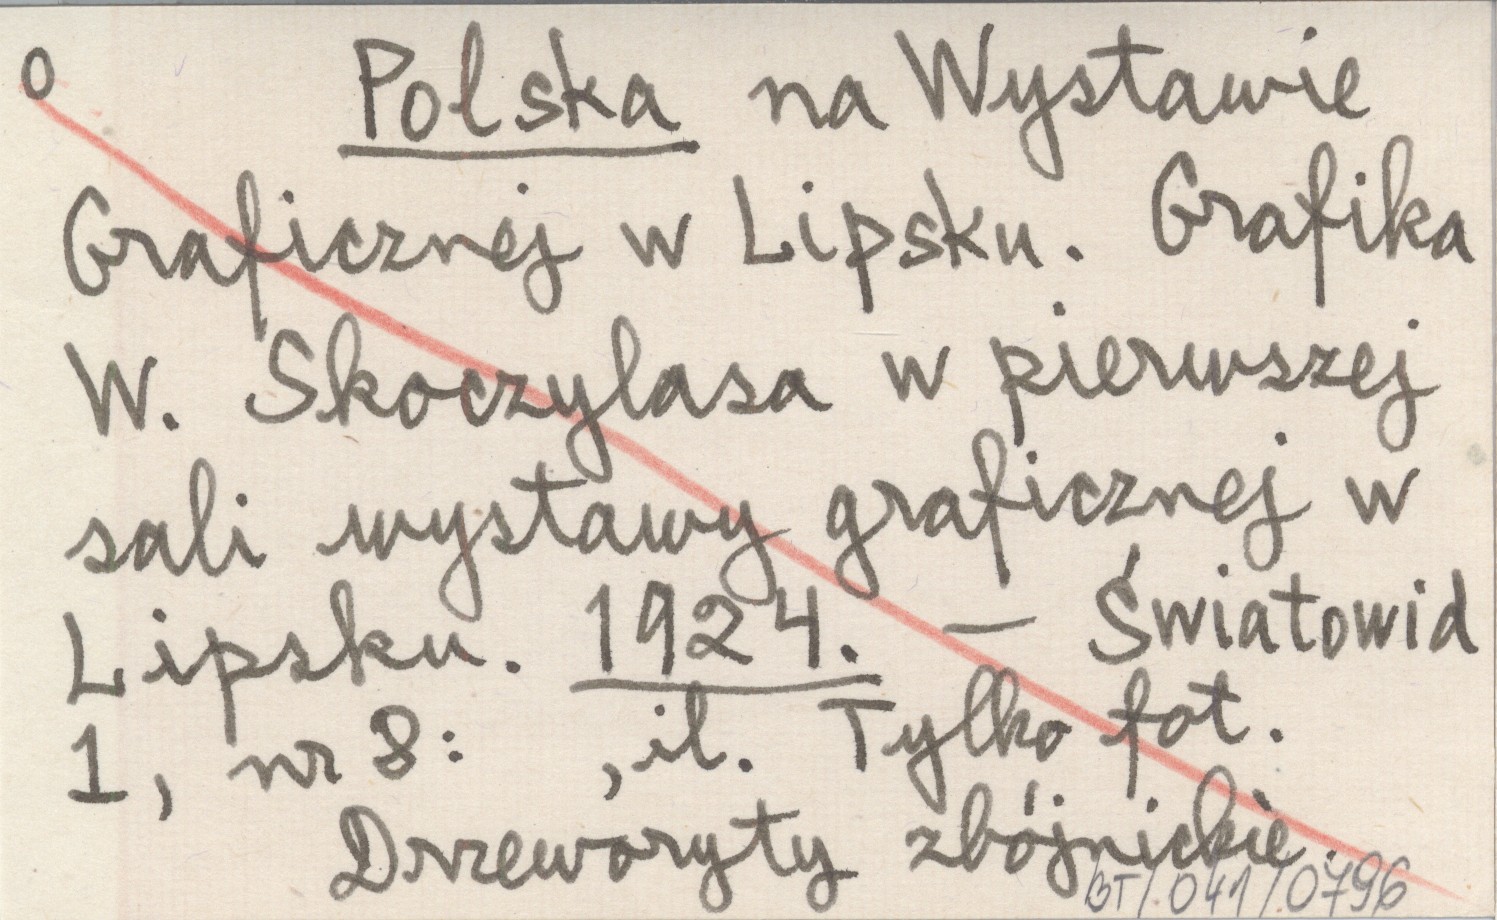 0 Polska na Wystawie
Graficznej w Lipsku. Grafika
W. Skoczylasa w pierwszej
sali wystawy graficznej w
Lipsku. 1924. — Światowid
1, nr 8: , il. Tylko fot.
Drzeworyty zbójnickie.
BT/041/0796